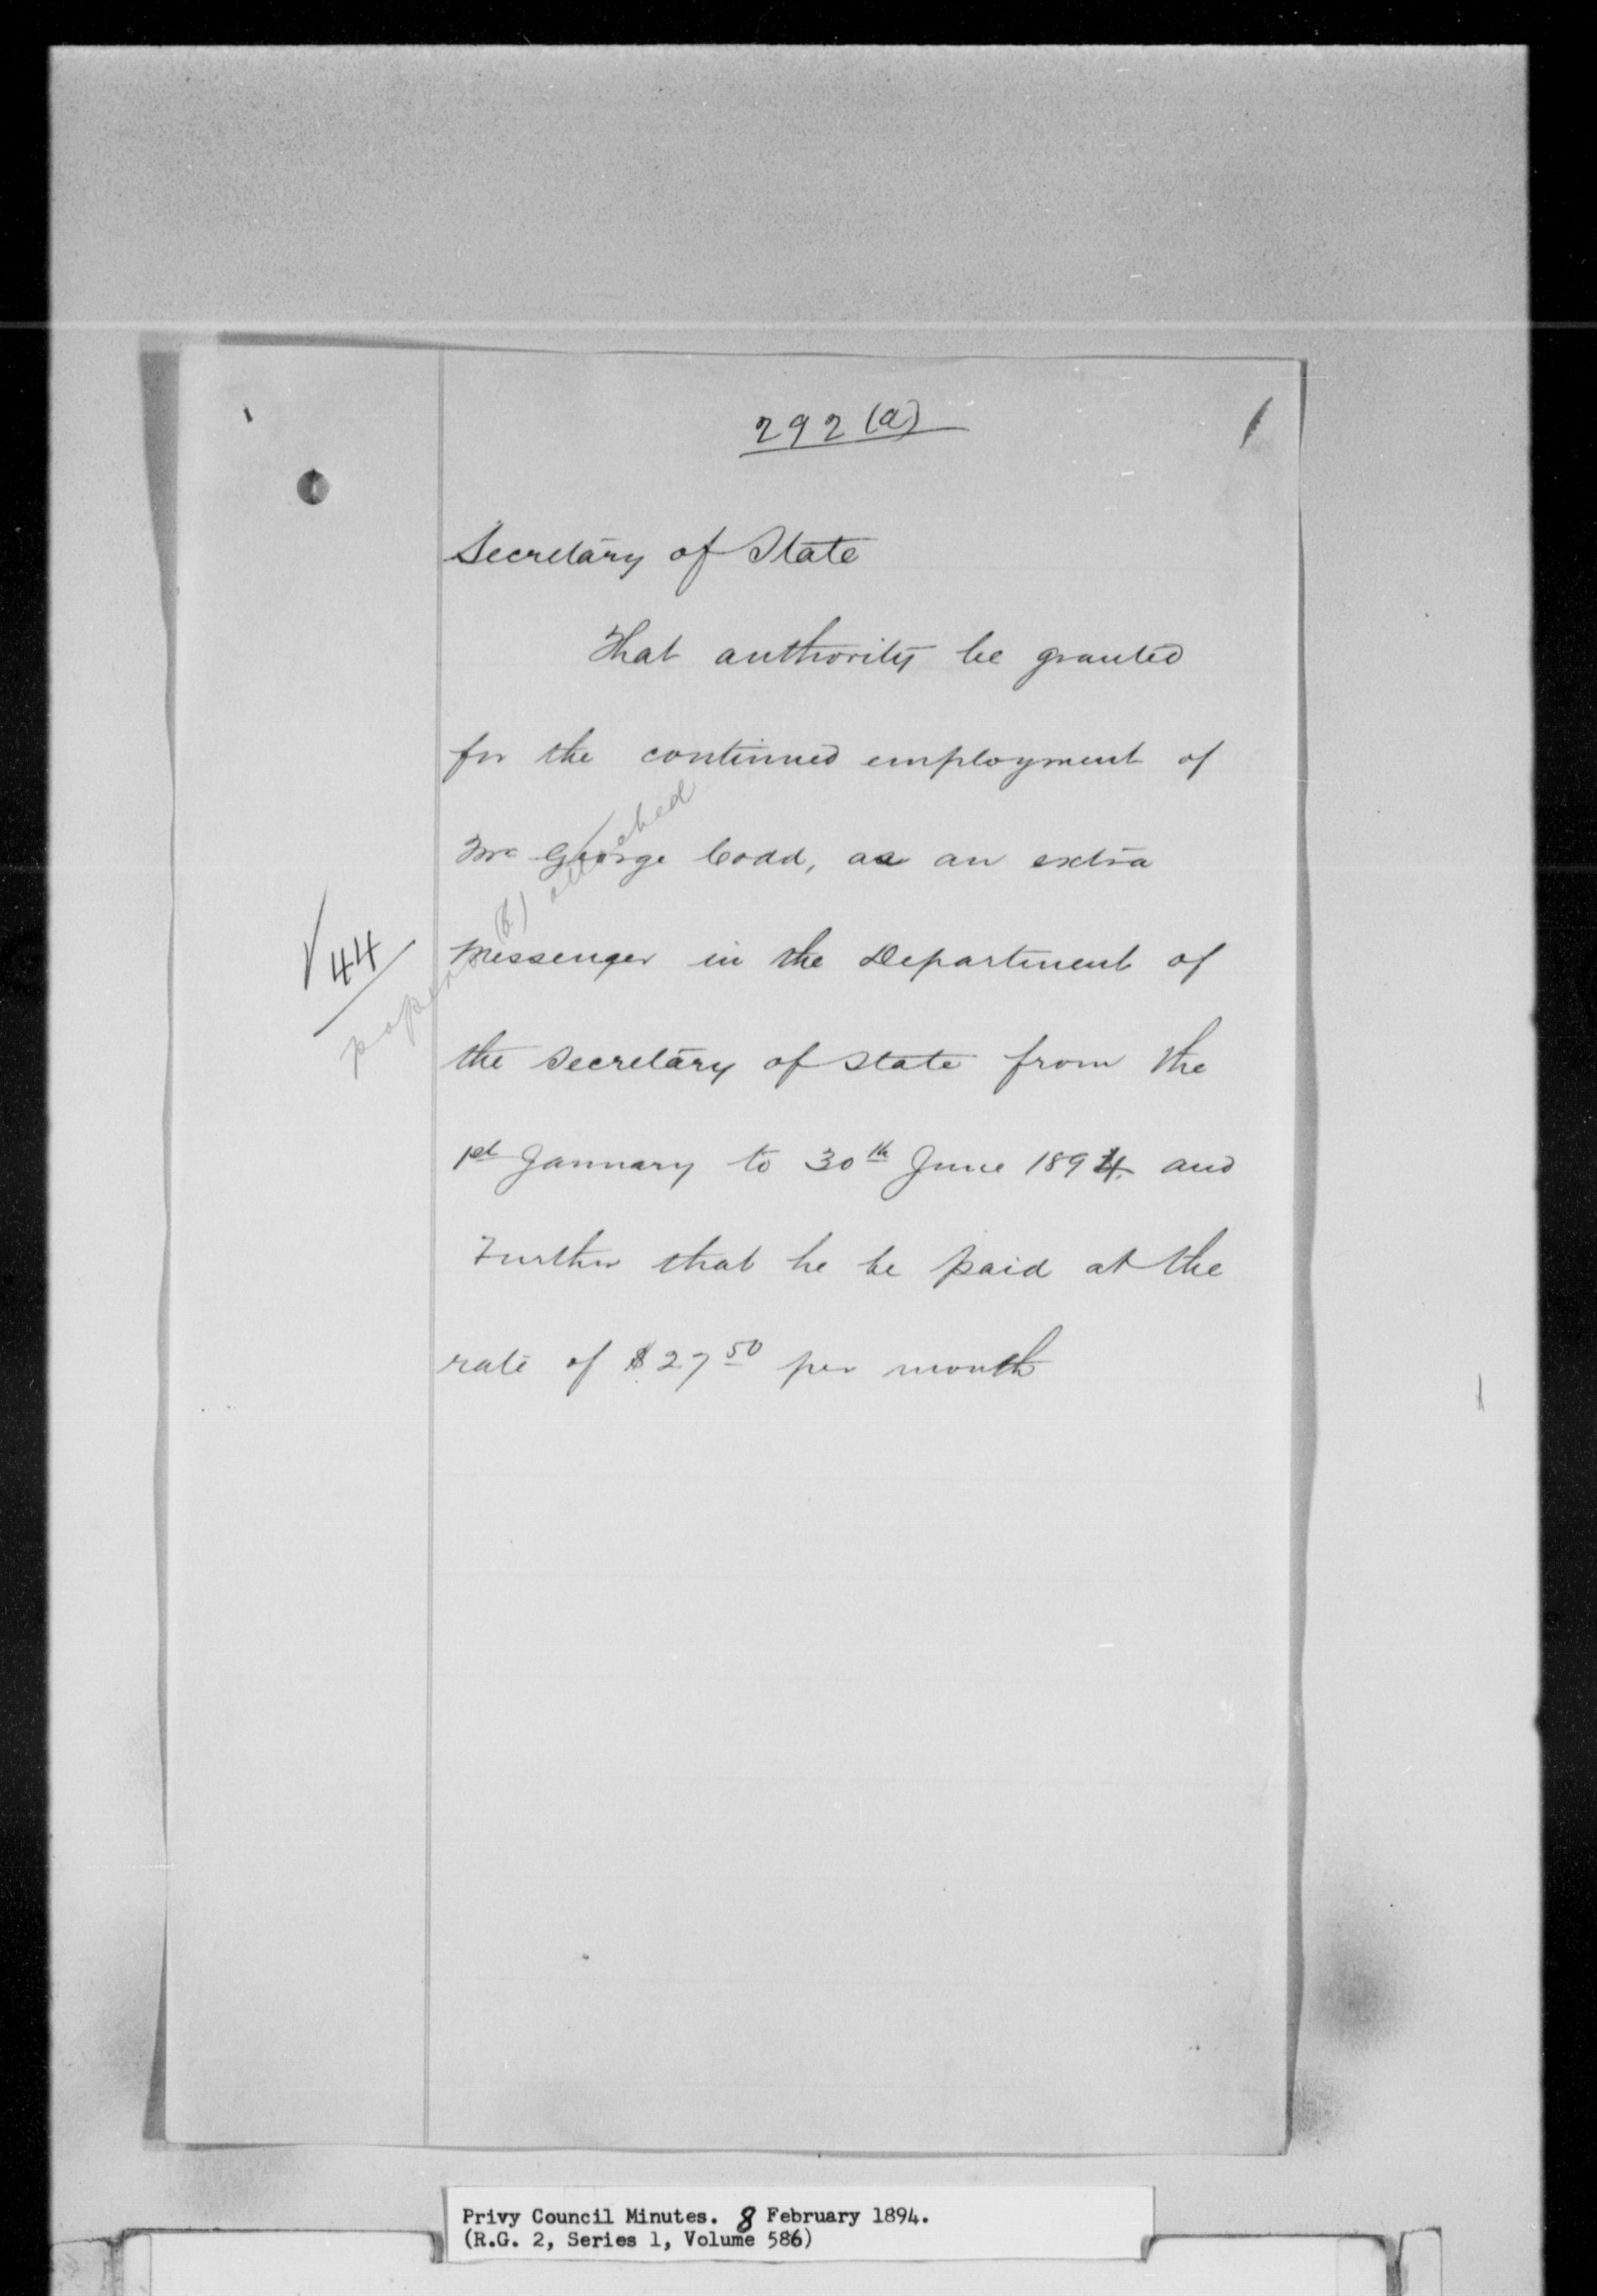 292 (a)
Secretary of State
That authority be granted
for the continued employment of
Mr George Codd, as an extra
Messenger in the Department of
the Secretary of State from the
1st January to 30th June 1894 and
Further that he be paid at the
rate of $27 50 per month
44
papers (2) attached
Privy Council Minutes. 8 February 1894.
(R.G. 2, Series 1, Volume 586)